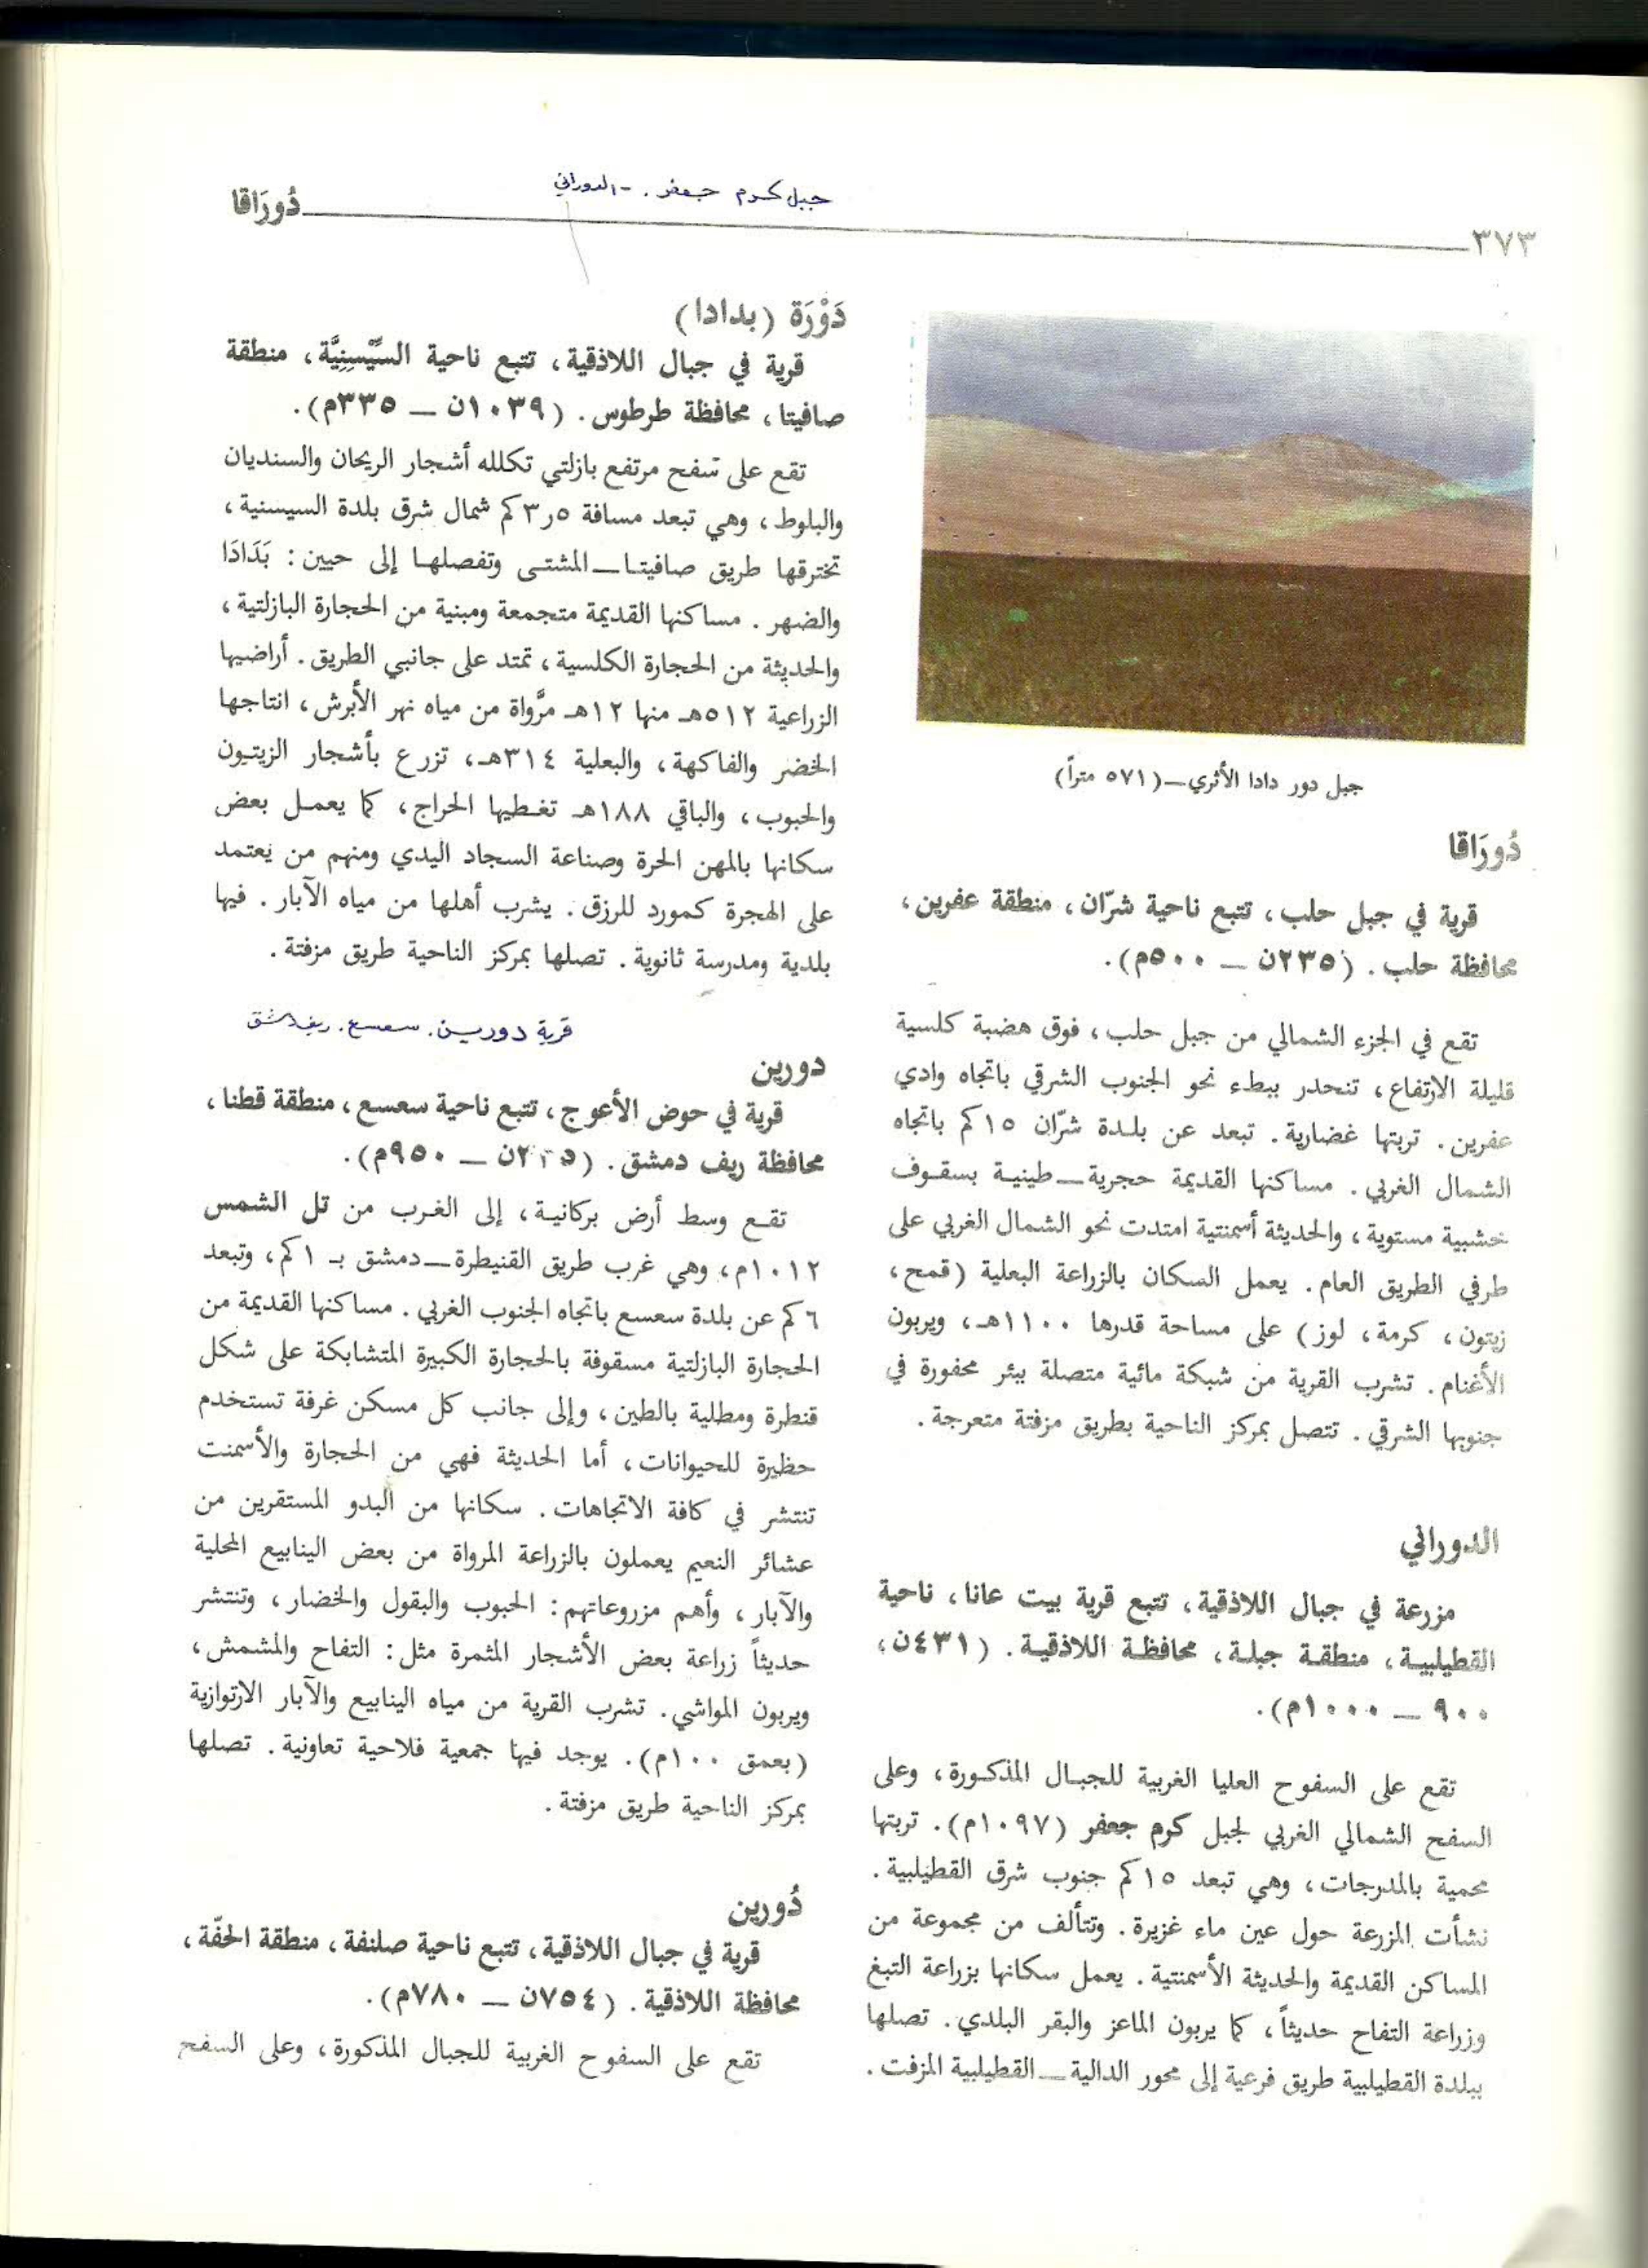 ٣٧٣
دُورَاقا
جبل كرم جعفر . - الدوراني
جبل دور دادا الأثري ــ (٥٧١ متراً)
دُورَاقا
قرية في جبل حلب، تتبع ناحية شرّان، منطقة عفرين،
محافظة حلب. (٢٣٥ن ــ ٥٠٠م).
تقع في الجزء الشمالي من جبل حلب، فوق هضبة كلسية
قليلة الارتفاع، تنحدر ببطء نحو الجنوب الشرقي باتجاه وادي
عفرين. تربتها غضارية. تبعد عن بلدة شرّان ١٥كم باتجاه
الشمال الغربي. مساكنها القديمة حجرية ــ طينية بسقوف
خشبية مستوية، والحديثة أسمنتية امتدت نحو الشمال الغربي على
طرفي الطريق العام. يعمل السكان بالزراعة البعلية (قمح،
زيتون، كرمة، لوز) على مساحة قدرها ١١٠٠هـ، ويربون
الأغنام. تشرب القرية من شبكة مائية متصلة ببئر محفورة في
جنوبها الشرقي. تتصل بمركز الناحية بطريق مزفتة متعرجة.
الدوراني
مزرعة في جبال اللاذقية، تتبع قرية بيت عانا، ناحية
القطيلبية، منطقة جبلة، محافظة اللاذقية. (٤٣١ن،
٩٠٠ ــ ١٠٠٠م).
تقع على السفوح العليا الغربية للجبال المذكورة، وعلى
السفح الشمالي الغربي لجبل كرم جعفر (١٠٩٧م). تربتها
محمية بالمدرجات، وهي تبعد ١٥كم جنوب شرق القطيلبية.
نشأت المزرعة حول عين ماء غزيرة. وتتألف من مجموعة من
المساكن القديمة والحديثة الأسمنتية. يعمل سكانها بزراعة التبغ
وزراعة التفاح حديثاً، كما يربون الماعز والبقر البلدي. تصلها
ببلدة القطيلبية طريق فرعية إلى محور الدالية ــ القطيلبية المزفت.
دَوْرَة (بدادا)
قرية في جبال اللاذقية، تتبع ناحية السِّيْسِنِيَّة، منطقة
صافيتا، محافظة طرطوس. (١٠٣٩ن ــ ٣٣٥م).
تقع على سفح مرتفع بازلتي تكلله أشجار الريحان والسنديان
والبلوط، وهي تبعد مسافة ٣٫٥كم شمال شرق بلدة السيسنية،
تخترقها طريق صافيتا ــ المشتى وتفصلها إلى حيين: بَدَادَا
والضهر. مساكنها القديمة متجمعة ومبنية من الحجارة البازلتية،
والحديثة من الحجارة الكلسية، تمتد على جانبي الطريق. أراضيها
الزراعية ٥١٢هـ منها ١٢هـ مرَّواة من مياه نهر الأبرش، انتاجها
الخضر والفاكهة، والبعلية ٣١٤هـ، تزرع بأشجار الزيتون
والحبوب، والباقي ١٨٨هـ تغطيها الحراج، كما يعمل بعض
سكانها بالمهن الحرة وصناعة السجاد اليدي ومنهم من يعتمد
على الهجرة كمورد للرزق. يشرب أهلها من مياه الآبار. فيها
بلدية ومدرسة ثانوية. تصلها بمركز الناحية طريق مزفتة.
قرية دورين. سعسع. ريف دمشق
دورين
قرية في حوض الأعوج، تتبع ناحية سعسع، منطقة قطنا،
محافظة ريف دمشق. ( ــ ٩٥٠م).
تقع وسط أرض بركانية، إلى الغرب من تل الشمس
١٠١٢م، وهي غرب طريق القنيطرة ــ دمشق بـ ١كم، وتبعد
٦كم عن بلدة سعسع باتجاه الجنوب الغربي. مساكنها القديمة من
الحجارة البازلتية مسقوفة بالحجارة الكبيرة المتشابكة على شكل
قنطرة ومطلية بالطين، وإلى جانب كل مسكن غرفة تستخدم
حظيرة للحيوانات، أما الحديثة فهي من الحجارة والأسمنت
تنتشر في كافة الاتجاهات. سكانها من البدو المستقرين من
عشائر النعيم يعملون بالزراعة المرواة من بعض الينابيع المحلية
والآبار، وأهم مزروعاتهم: الحبوب والبقول والخضار، وتنتشر
حديثاً زراعة بعض الأشجار المثمرة مثل: التفاح والمشمش،
ويربون المواشي. تشرب القرية من مياه الينابيع والآبار الارتوازية
(بعمق ١٠٠م). يوجد فيها جمعية فلاحية تعاونية. تصلها
بمركز الناحية طريق مزفتة.
دُورين
قرية في جبال اللاذقية، تتبع ناحية صلنفة، منطقة الحفّة،
محافظة اللاذقية. (٧٥٤ن ــ ٧٨٠م).
تقع على السفوح الغربية للجبال المذكورة، وعلى السفح